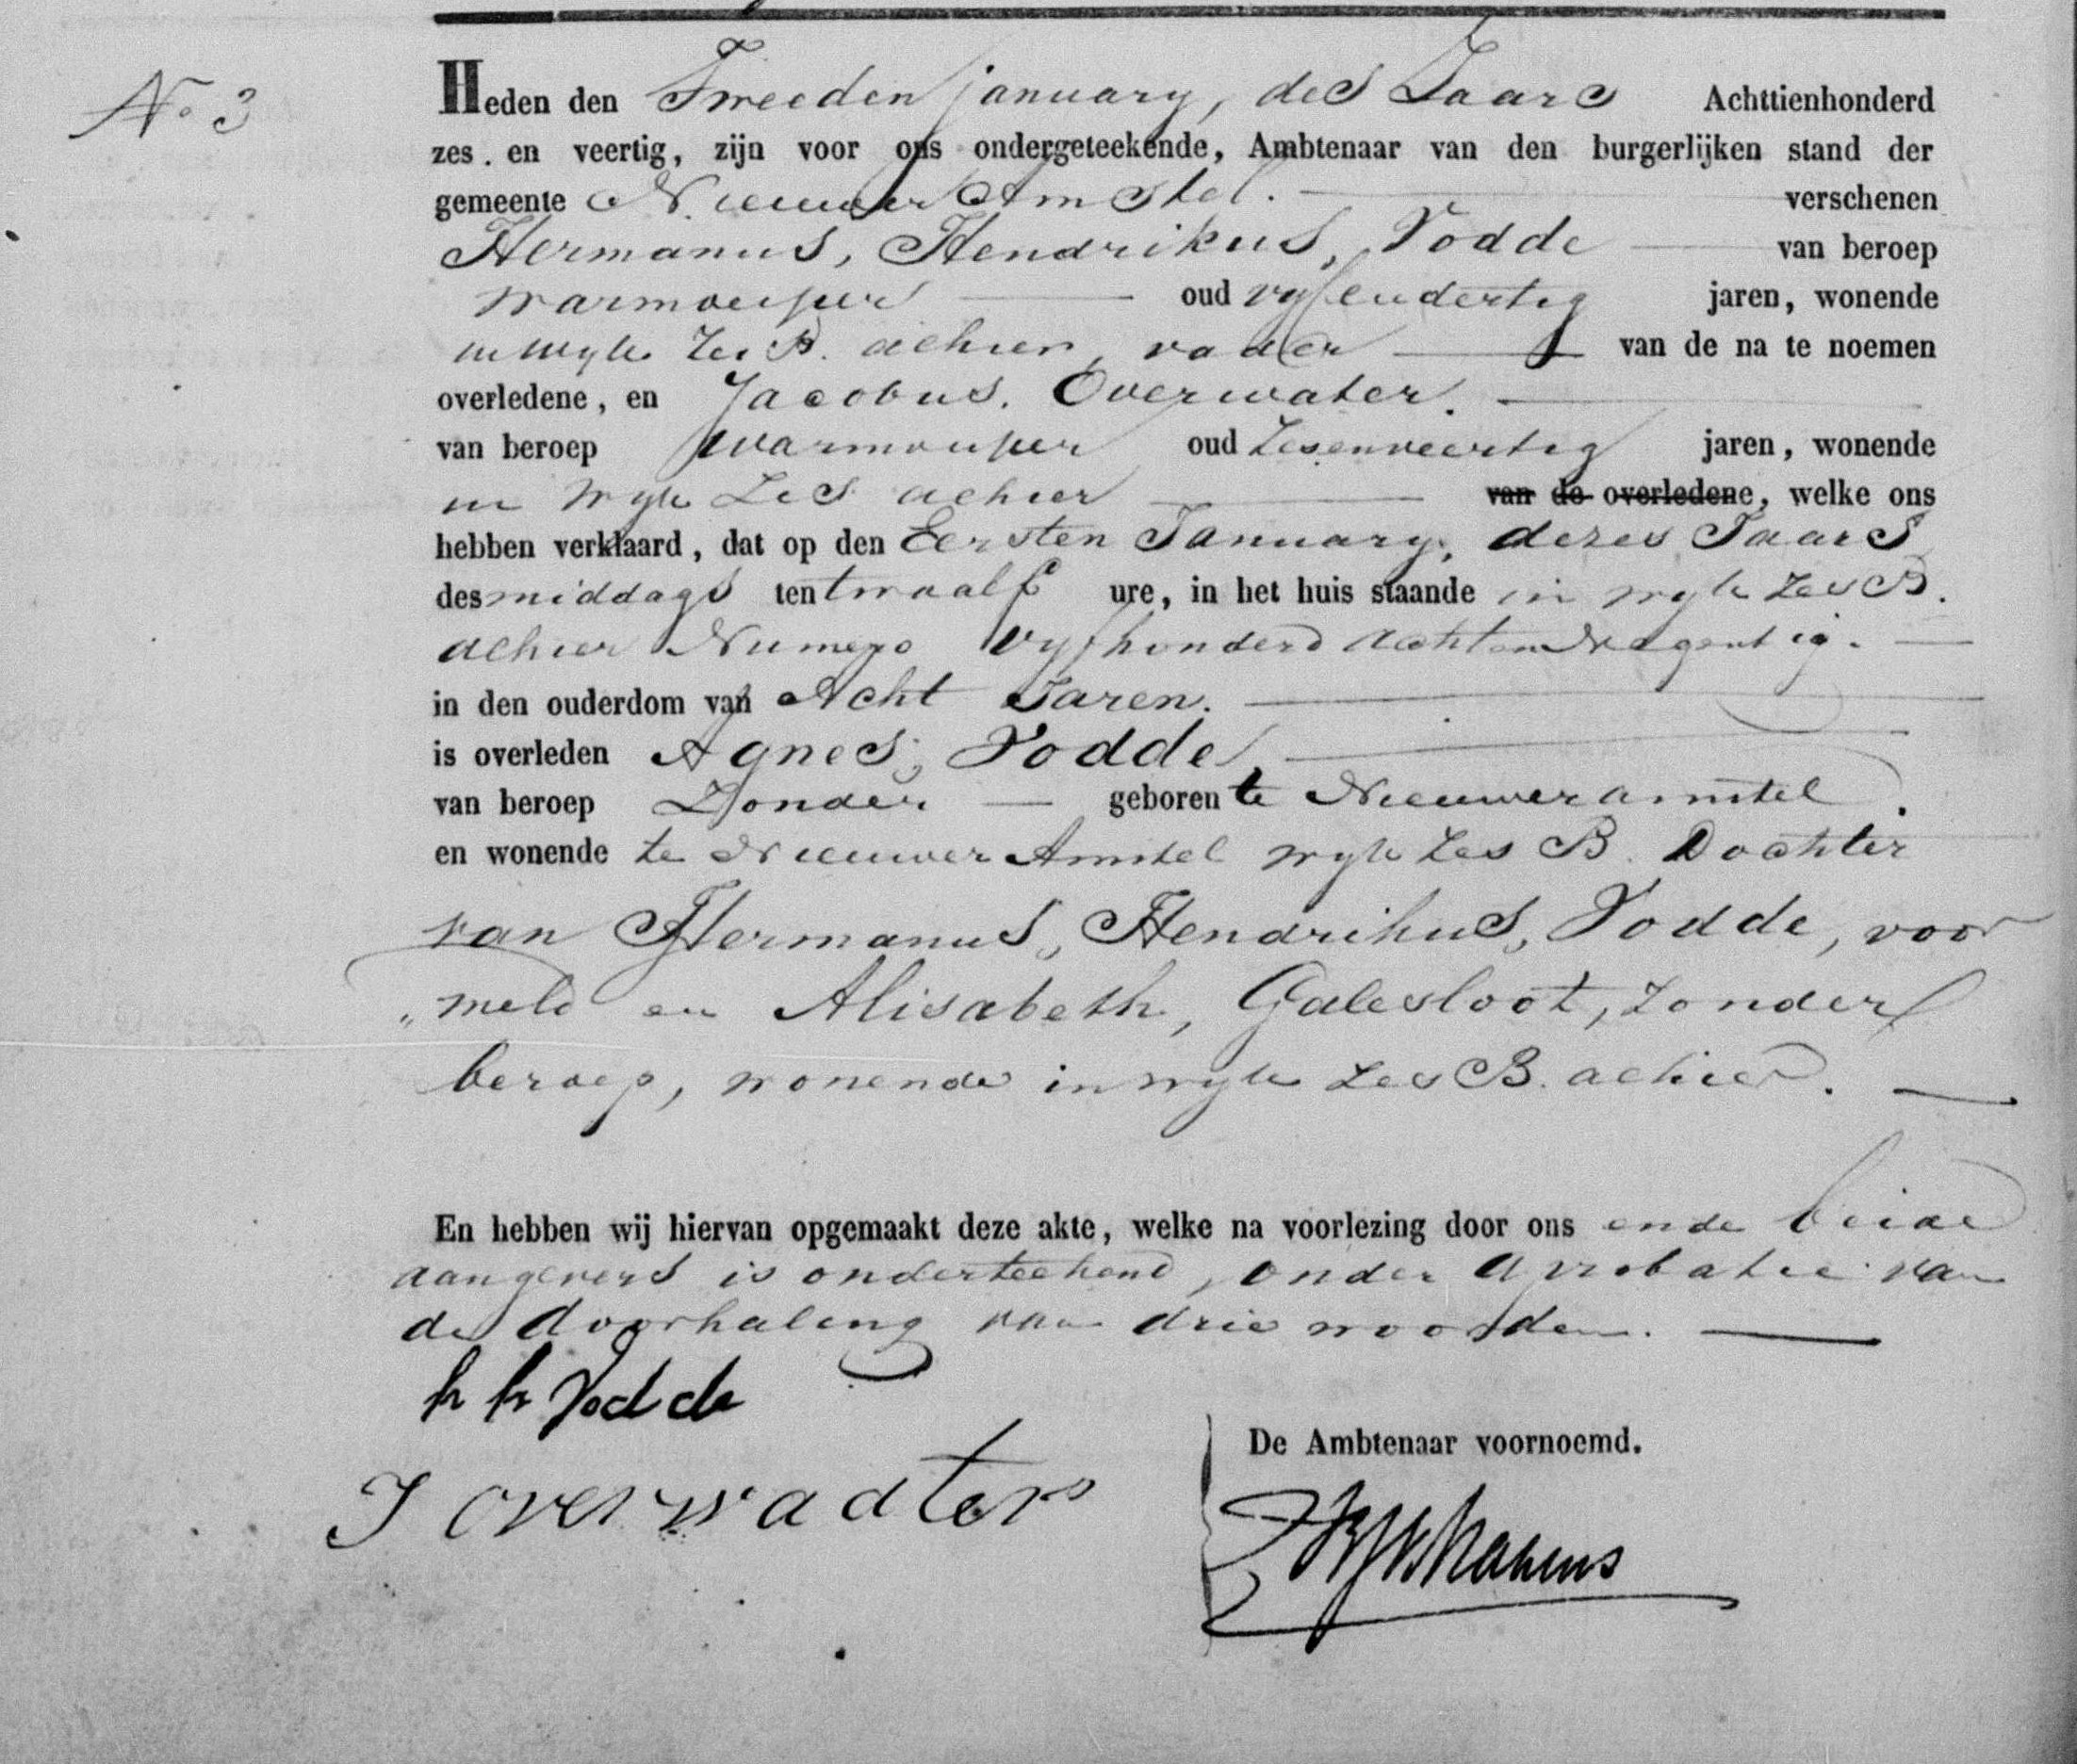 No 3
Heden den Tweeden january, des Jaars Achttienhonderd
zes en veertig, zijn voor ons ondergeteekende, Ambtenaar van den burgerlijken stand der
gemeente Nieuwer Amstel. verschenen
Hermanus, Hendrikus, Vodde van beroep
warmoesier oud vyfendertig jaren, wonende
in wyk Zes B. alhier, vader van de na te noemen
overledene, en Jacobus. Overwater.
van beroep warmousier oud Zesenveertig jaren, wonende
in wyk Zes alhier van de overledene, welke ons
hebben verklaard, dat op den Eersten January, dezes Jaars
des middags ten twaalf ure, in het huis staande in wyk Zes B.
alhier Numero Vyfhonderd achtenNegentig.
in den ouderdom van Acht Jaren.
is overleden Agnes, Vodde,
van beroep Zonder geboren te Nieuweramstel.
en wonende te Nieuwer Amstel wyk Zes B. Dochter
van Hermanus, Hendrikus, Vodde, voor
" meld en Alisabeth, Galesloot, Zonder
beroep, wonende in wyk Zes B. alhier.
En hebben wij hiervan opgemaakt deze akte, welke na voorlezing door ons en de beide
aangevers is onderteekend, onder aprobatie van
de doorhaling van drie woorden.
h h Vodde
J overwadter
De Ambtenaar voornoemd.